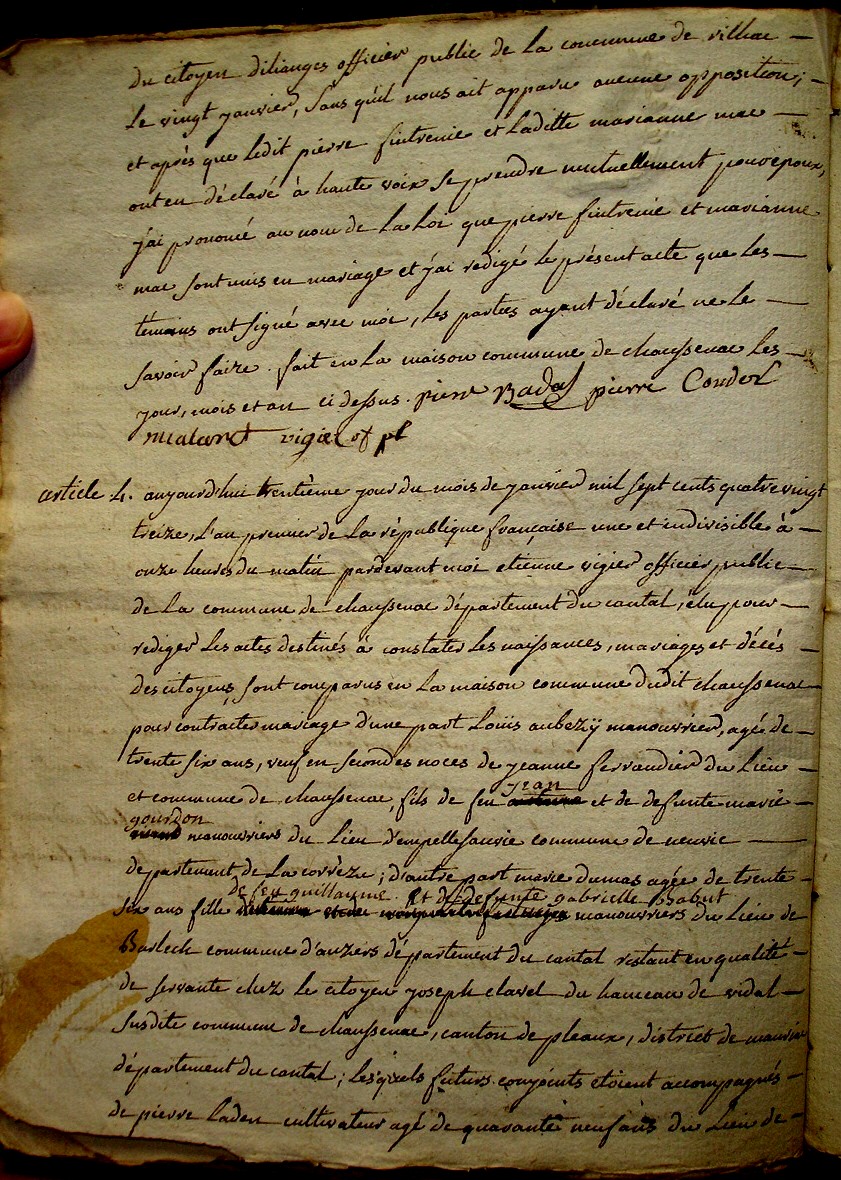 du citoyen dilianges officier public de la commune de rilhac —
le vingt janvier, sans qu'il nous ait apparu aucune opposition; —
et après que ledit pierre fintrenie et laditte marianne mac —
onteu déclaré à haute voix se prendre mutuellement pour epoux,
j'ai prononcé au nom de la loi que pierre fintrenie et marianne
mac sont unis en mariage et j'ai redigé le présent acte que les —
témoins ont signé avec moi, les parties ayant déclaré ne le —
savoir faire. fait en la maison commune de chaussenac les —
jour, mois et an ci dessus. pierre Badal pierre Couderc
mialaret vigier of pl
article 4. aujourd'hui trentième jour du mois de janvier mil sept cents quatre vingt
treize, l'an premier de la république française une et indivisible à —
onze heures du matin pardevant moi etienne vigier officier public —
de la commune de chaussenac département du cantal, élu pour —
rediger les actes destinés à constater les naissances, mariages et décés —
des citoyens, sont comparus en la maison commune dudit chaussenac
pour contracter mariage d'une part Loüis aubezÿ manouvrier, agé de —
trente six ans, veuf en secondes noces de jeanne ferrandier du lieu —
jean
et commune de chaussenac, fils de feu et de defunte marie —
gourdon
manouvriers du lieu d'empellesauvie commune de neuvic —
departement de la corrèze; d'autre part marie dumas agée de trente —
de feu guillaume et de defunte gabrielle Babut
six ans fille manouvriers du lieu de
Barlech commune d'auzers département du cantal restant en qualité —
de servante chez le citoyen joseph clavel du hameau de vidal —
susdite commune de chaussenac, canton de pleaux, district de mauriac
département du cantal; lesquels futurs conjoints étoient accompagnés —
de pierre laden cultivateur agé de quarante neuf ans du lieu de —